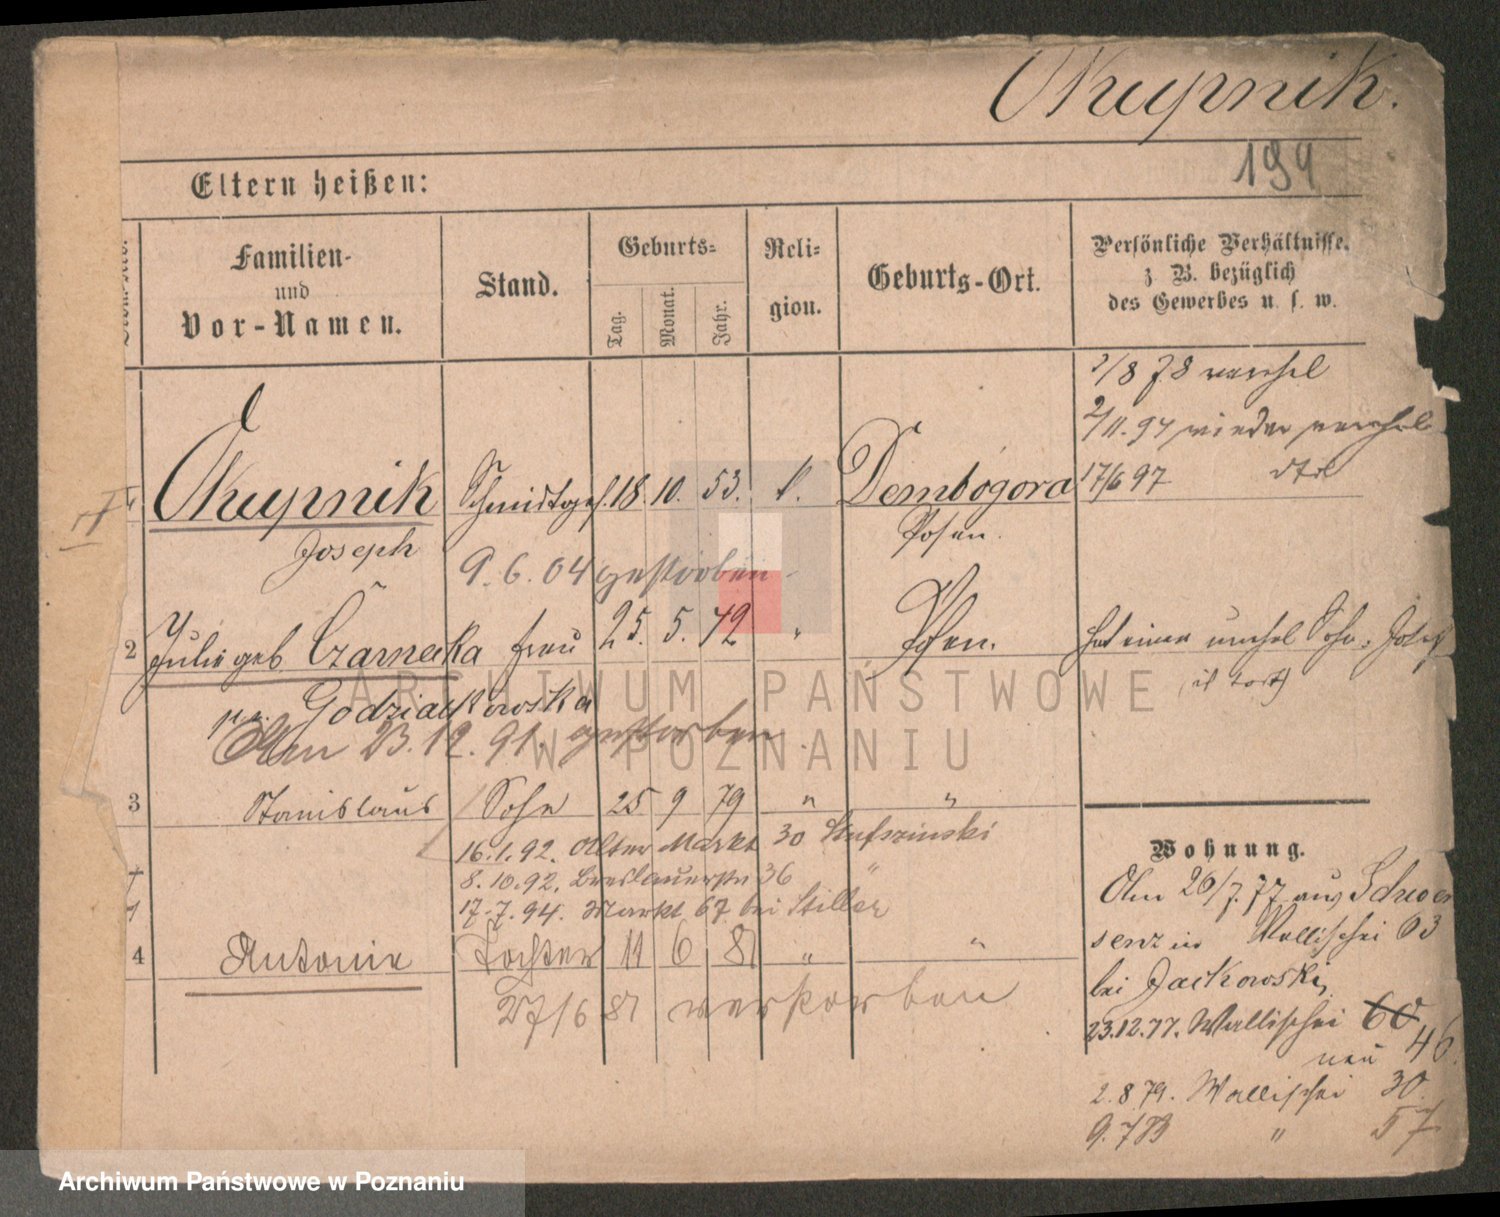 Okupnik.
199
Eltern heißen:
Familien-
und
Vor-Namen.
Stand.
Geburts-
Tag.
Monat.
Jahr.
Reli-
gion.
Geburts-Ort.
Persönliche Verhältnisse.
z. B. bezüglich
des Gewerbes u. s. w.
2/8 78 verehel
2/11.94 wieder verehel
17/6 97
Okupnik Schmidtges. 18. 10. 53. k. Dembogora
Joseph
Posen.
9.6.04 gestorben
2 Julie geb Czarnecka Frau 25. 5. 42 " Posen. hat einen unehel Sohn: Josef
(ist todt)
Godziatkowska
Am 23.12.91. gestorben
3 Stanislaus Sohn 25 9 79 " "
16.1.92. Alter Markt 30
8.10.92. Breslauerstr 36 "
17.7.94. Markt 67 bei Stiller
4 Antonie Tochter 11 6 81 " "
27/6 81 verstorben
Wohnung.
Am 26/7.77 aus Schwer
senz in Wallischei 63
bei Jackowski,
23.12.77. Wallischei 60
neu 46.
2.8.79. Wallischei 30.
9.7 " 57
ARCHIWUM PAŃSTWOWE
W POZNANIU
Archiwum Państwowe w Poznaniu